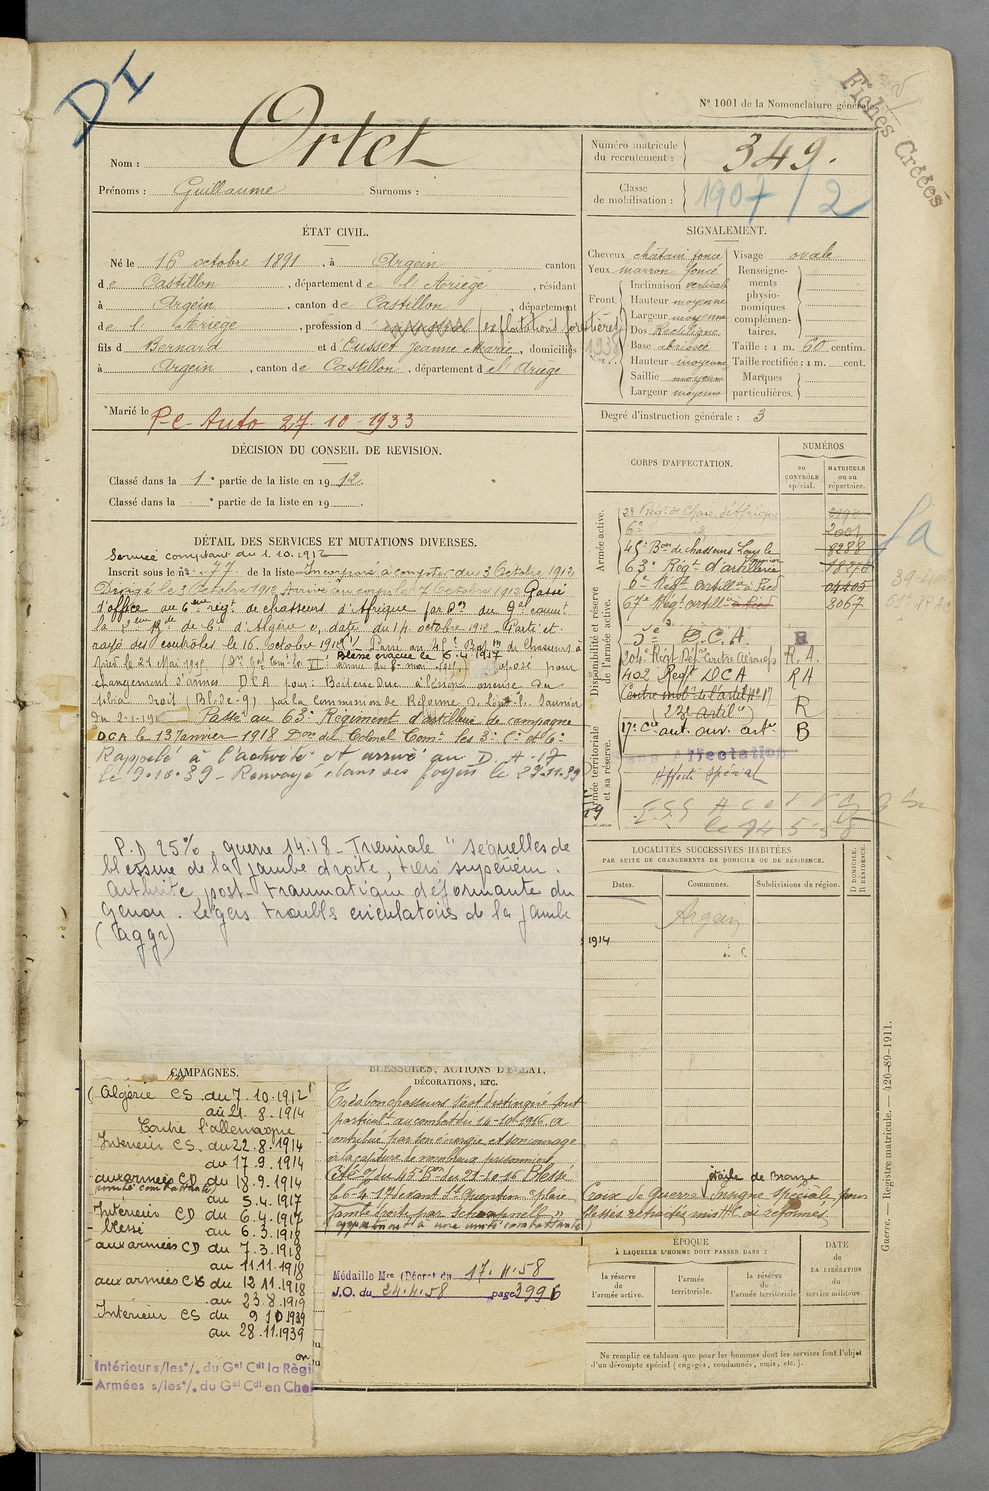 DI
N° 1001 de la Nomenclature générale.
Fiches Créées
Nom : Ortet
Prénoms : Guillaume Surnoms :
Numéro matricule du recrutement : 349.
Classe de mobilisation : 1907/2
ÉTAT CIVIL.
Né le 16 octobre 1891, à Argein canton
de Castillon, département de l'Ariège, résidant
à Argein, canton de Castillon, département
de l'Ariège, profession d (exploitations forestières)
fils d Bernard et d Cusset Jeanne Marie, domiciliés
à Argein, canton de Castillon, département de l'Ariège
Marié le
P-C- Auto 27-10-1933
SIGNALEMENT.
Cheveux châtain foncé
Yeux marron foncé
Front. Inclinaison verticale
Hauteur moyenne
Largeur moyenne
Dos Rectiligne
Base abaissée
Hauteur moyenne
Saillie moyenne
Largeur moyenne
Visage ovale
Renseignements physionomiques complémentaires.
Taille : 1 m. 60 centim.
Taille rectifiée : 1 m. cent.
Marques particulières.
1938
Degré d'instruction générale : 3
DÉCISION DU CONSEIL DE REVISION.
Classé dans la 1e partie de la liste en 1912.
Classé dans la e partie de la liste en 19 .
DÉTAIL DES SERVICES ET MUTATIONS DIVERSES.
Service comptant du 1.10.1912
Inscrit sous le n° 77 de la liste Incorporé à compter du 3 Octobre 1912
Dirigé le 3 Octobre 1912 Arrivé au corps le 7 Octobre 1912 Passé
d'office au 6eme régt de chasseurs d'Afrique par Don du Gal comt
la de Cie d'Algérie en date du 14 octobre 1912 Parti et
rayé des contrôles le 16 Octobre 1912 Passé au 45e Bon de Chasseurs à
Blessé évacué le 6.4.1917
pied le 21 Mai 1915 pour
changement d'armes D.C.A pour : Boiterie due à lésion osseuse du
tibia droit par la commission de Réforme de Lons-le-Saunier
du 2-1-191 Passé au 63e Régiment d'artillerie de campagne
D.C.A le 13 Janvier 1918 Don du Colonel Comt les 3e Cie et 6e
Rappelé à l'activité et arrivé au D. A. 17
le 9.10.39 - Renvoyé dans ses foyers le 29.11.39
P.D 25% guerre 14.18 - Triennale " Séquelles de
blessure de la jambe droite, tiers supérieur.
Arthrite post-traumatique déformante du
genou. Légers troubles circulatoires de la jambe
(aggr)
CORPS D'AFFECTATION.
NUMÉROS
au CONTRÔLE spécial.
MATRICULE ou au répertoire.
Armée active.
2e Régt de Chas. d'Afrique
6e d° 2001
45e Bon de chasseurs 8288
63e Régt d'artillerie 18270
Disponibilité et réserve de l'armée active.
6e Régt artillie à Pied 04405
67e Régt artillie à Pied 8067
D.C.A. B
204e Régt Déf. Contre Aéronefs R.A.
402 Regt DCA RA
Centre mobre d'artie N° 17
(23e artie) R
Armée territoriale et sa réserve.
17e Cie aut. ouv. artie B
Sans Affectation
Affecté Spécial
LOCALITÉS SUCCESSIVES HABITÉES
PAR SUITE DE CHANGEMENTS DE DOMICILE OU DE RÉSIDENCE.
Dates. Communes. Subdivisions de région. D DOMICILE. R RÉSIDENCE.
Argein
1914
CAMPAGNES.
Algérie CS du 7.10.1912
au 21.8.1914
Contre l'allemagne
Intérieur CS du 22.8.1914
au 17.9.1914
aux armées CD du 18.9.1914
(unité combattante)
au 5.4.1917
Intérieur CD du 6.4.1917
blessé au 6.3.1918
aux armées CD du 7.3.1918
au 11.11.1918
aux armées CS du 12.11.1918
au 23.8.1919
Intérieur CS du 9.10.1939
au 28.11.1939
Intérieur s/les°/. du Gal Cdt la Régi
Armées s/les°/. du Gal Cdt en Chef
BLESSURES, ACTIONS D'ÉCLAT, DÉCORATIONS, ETC.
Très bon chasseur s'est distingué tout
particult au combat du 14-10-1916, a
contribué par son énergie et son courage
à la capture de nombreux prisonniers
Cité O/ du 45e Bon du 21-10-16 Blessé
le 6-4-17 devant St Quentin "plaie
jambe droite par Schrapnell"
appartenant à une unité combattante
étoile de Bronze
Croix de Guerre Insigne spéciale pour
blessés retraités mis H.C. ou réformés.
Médaille Mre (Décret du 17.4.58
J.O. du 24.4.58 page 3996
ÉPOQUE
À LAQUELLE L'HOMME DOIT PASSER DANS :
la réserve de l'armée active.
l'armée territoriale.
la réserve de l'armée territoriale
DATE de LA LIBÉRATION du service militaire.
Ne remplir ce tableau que pour les hommes dont les services font l'objet
d'un décompte spécial (engagés, condamnés, omis, etc.).
Guerre. — Registre matricule. — 426-89-1911.